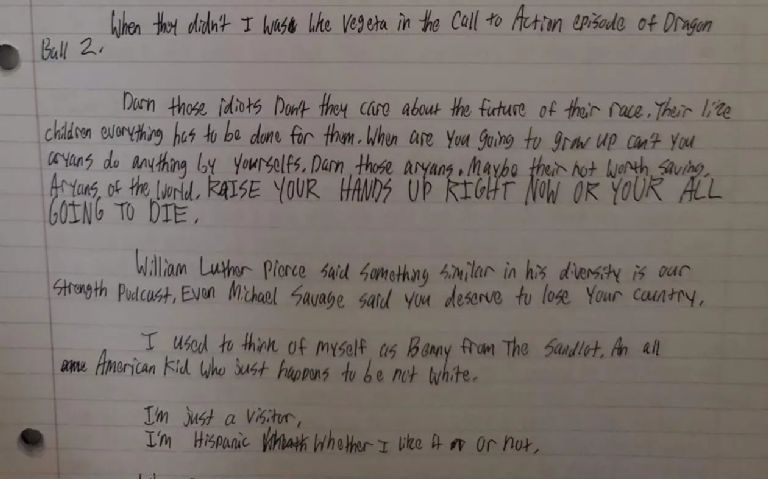 When they didn't I was like Vegeta in the Call to Action episode of Dragon
Ball Z.
Darn those idiots Don't they care about the future of their race. Their like
children everything has to be done for them. When are you going to grow up can't you
aryans do anything by yourselfs. Darn those aryans. Maybe their not worth saving.
Aryans of the world. RAISE YOUR HANDS UP RIGHT NOW OR YOUR ALL
GOING TO DIE.
William Luther Pierce said something similar in his diversity is our
strength Podcast, Even Michael Savage said you deserve to lose your country.
I used to think of myself as Benny from The Sandlot. An all
American Kid who just happens to be not white.
I'm just a visitor,
I'm Hispanic Whether I like it or not.